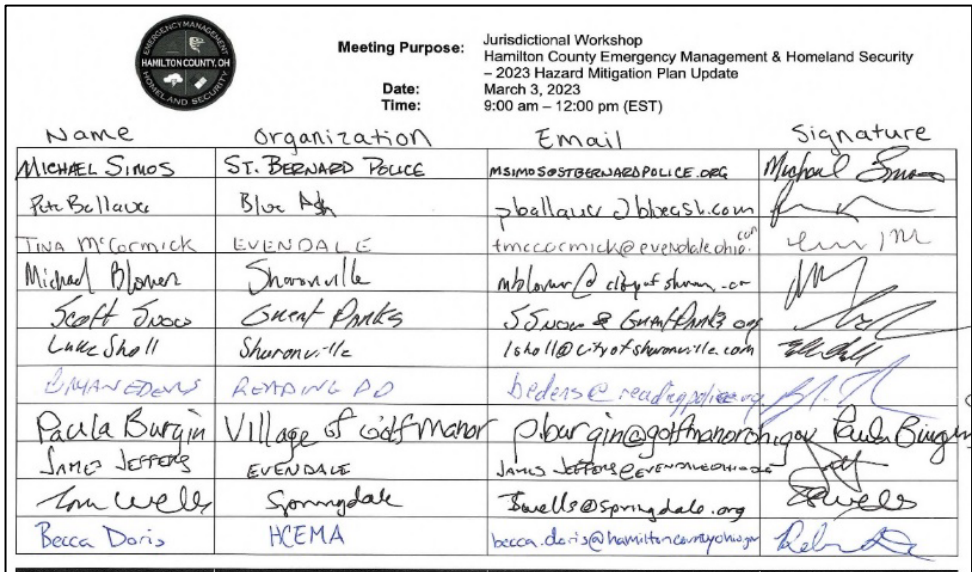 EMERGENCY MANAGEMENT
HAMILTON COUNTY, OH
HOMELAND SECURITY
Meeting Purpose: Jurisdictional Workshop
Hamilton County Emergency Management & Homeland Security
– 2023 Hazard Mitigation Plan Update
Date: March 3, 2023
Time: 9:00 am – 12:00 pm (EST)
Name Organization Email Signature
MICHAEL SIMOS ST. BERNARD POLICE MSIMOS@STBERNARDPOLICE.ORG Michael Simos
Pete Ballauer Blue Ash pballauer@blueash.com
TINA McCORMICK EVENDALE tmccormick@evendaleohio.com
Michael Blomer Sharonville
Scott Snow Great Parks SSnow@GreatParks.org
Luke Sholl Sharonville lsholl@cityofsharonville.com
BRYAN EDENS READING PD bedens@readingpolice.org
Paula Burgin Village of Golf Manor p.burgin@golfmanoroh.gov Paula Burgin
JAMES JEFFERS EVENDALE
Tom Wells Springdale @springdale.org Wells
Becca Doris HCEMA becca.doris@hamiltoncountyohio.gov